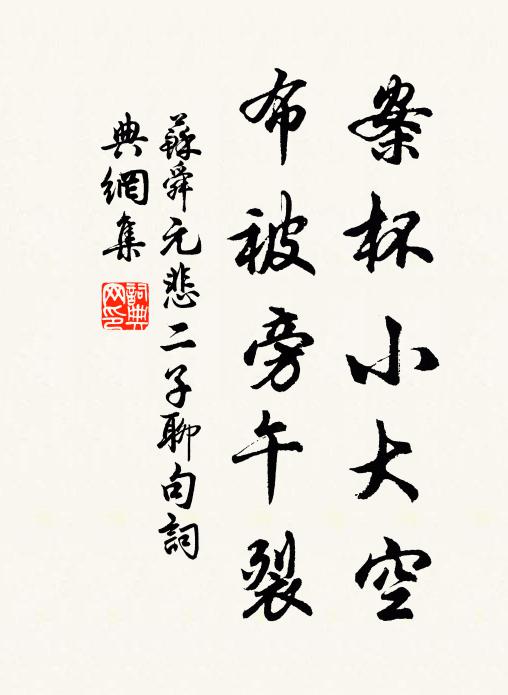 案杯小大空
布被旁午裂
蘇舜元悲二子聊句詞
典網集
詞典
网印